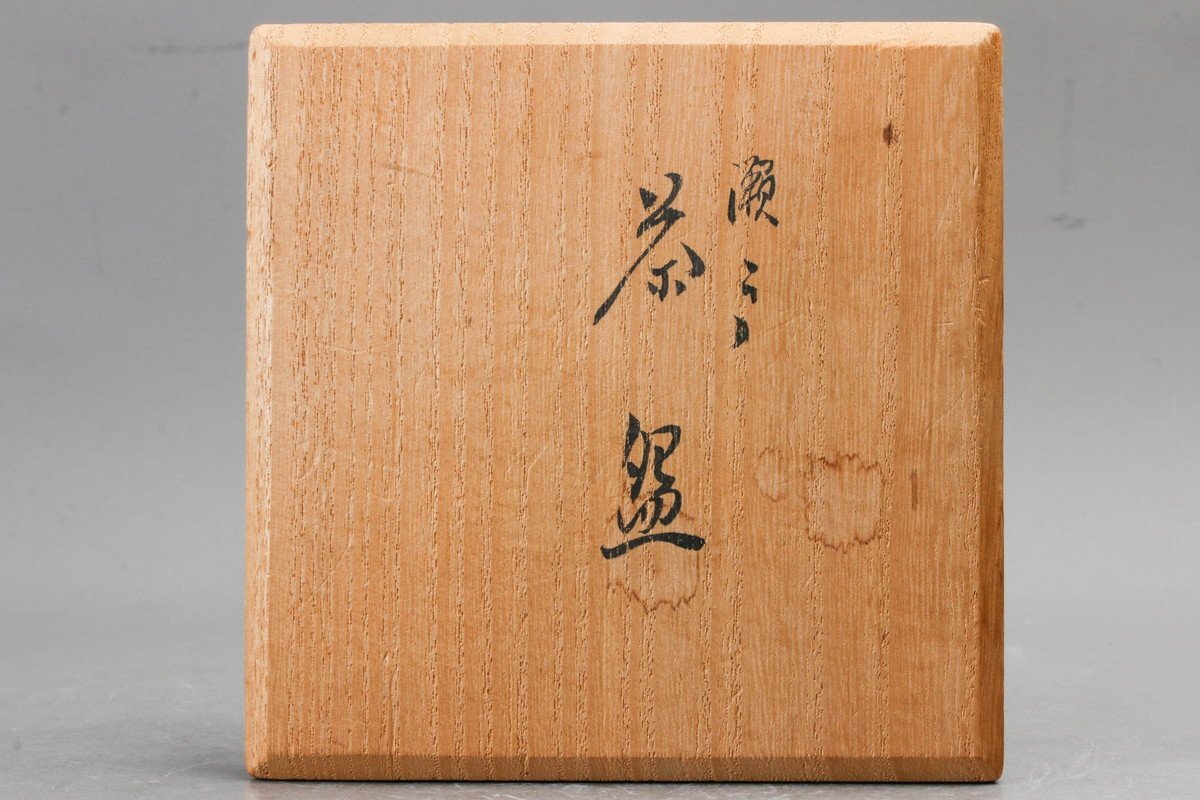 瀬戸
茶盌